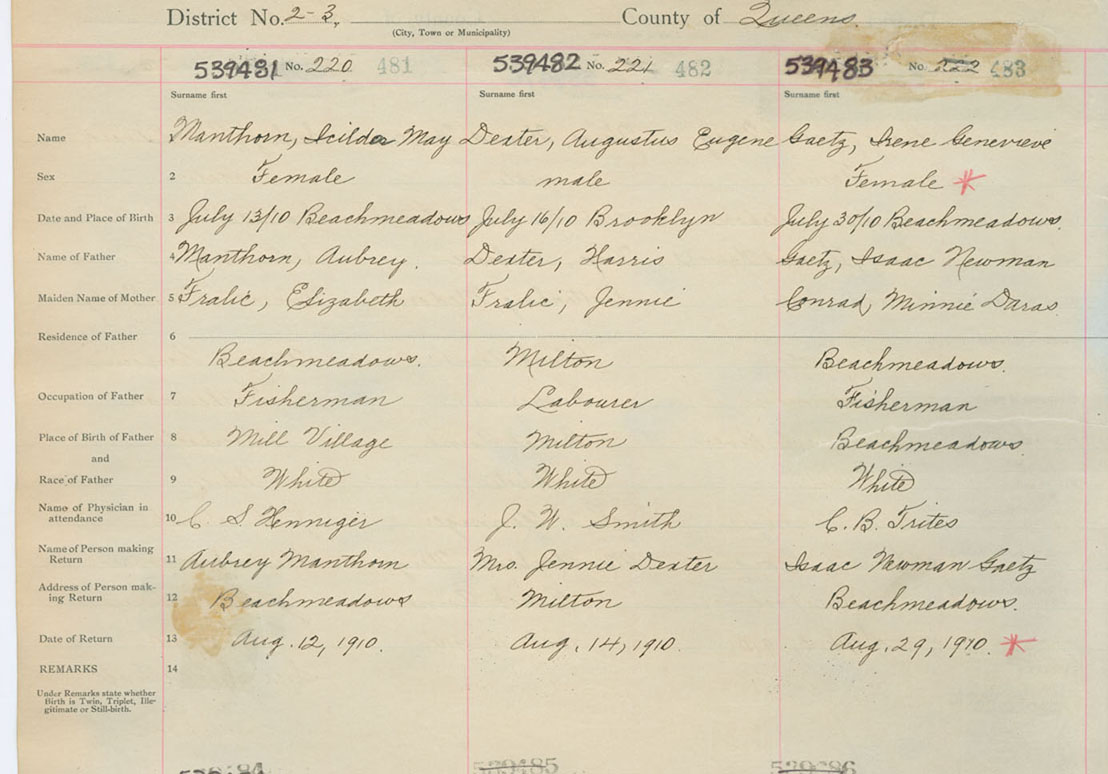 District No. 2-3, County of Queens.
(City, Town or Municipality)
539481 No. 220 481 539482 No. 221 482 539483 No. 222 483
Surname first Surname first Surname first
Name 1 Manthorn, Icilda May Dexter, Augustus Eugene Gaetz, Irene Genevieve
Sex 2 Female male Female *
Date and Place of Birth 3 July 13/10 Beachmeadows July 16/10 Brooklyn July 30/10 Beachmeadows.
Name of Father 4 Manthorn, Aubrey. Dexter, Harris Gaetz, Isaac Newman
Maiden Name of Mother 5 Fralic, Elizabeth Fralic, Jennie Conrad, Minnie Daras
Residence of Father 6
Beachmeadows. Milton Beachmeadows.
Occupation of Father 7 Fisherman Labourer Fisherman
Place of Birth of Father 8 Mill Village Milton Beachmeadows
and
Race of Father 9 White White White
Name of Physician in
attendance 10 C. S. Henniger J. W. Smith C. B. Trites
Name of Person making
Return 11 Aubrey Manthorn Mrs. Jennie Dexter Isaac Newman Gaetz
Address of Person mak-
ing Return 12 Beachmeadows Milton Beachmeadows.
Date of Return 13 Aug. 12, 1910. Aug. 14, 1910. Aug. 29, 1910. *
REMARKS 14
Under Remarks state whether
Birth is Twin, Triplet, Ille-
gitimate or Still-birth.
539484 539485 539486